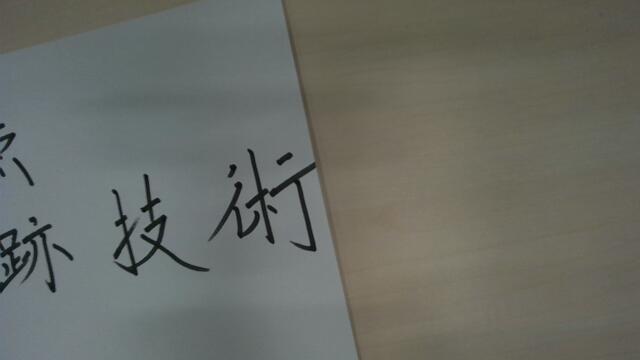 跡技術